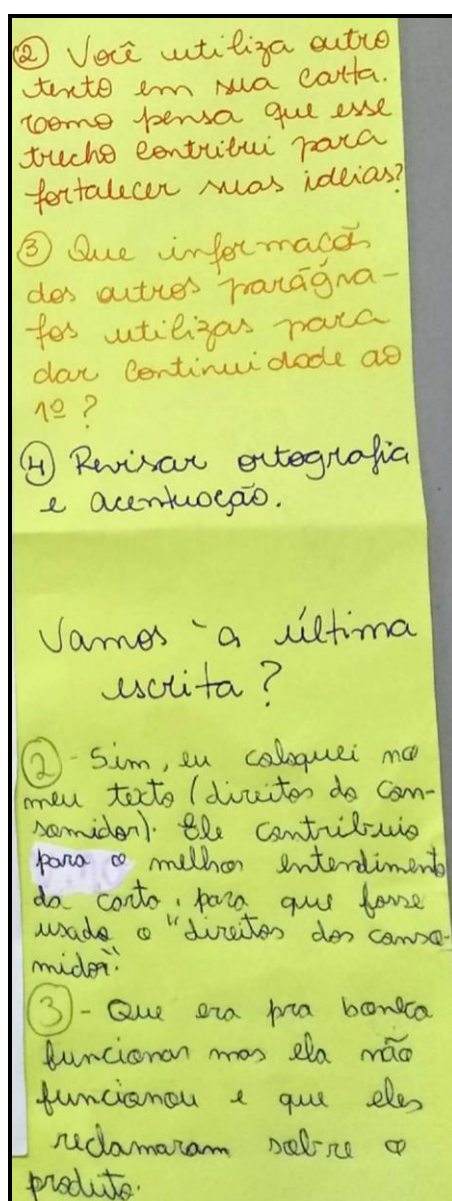 ② Você utiliza outro
texto em sua carta.
Como pensa que esse
trecho contribui para
fortalecer suas ideias?
③ Que informação
dos outros parágra-
fos utilizas para
dar continuidade ao
1º?
④ Revisar ortografia
e acentuação.
Vamos à última
escrita?
② - Sim, eu coloquei no
meu texto (direitos do con-
somidor). Ele contribuio
para o melhor entendimento
da carta, para que fosse
usado o "direitos dos conso-
midor".
③ - Que era pra boneca
funcionar mas ela não
funcionou e que eles
reclamaram sobre o
produto.